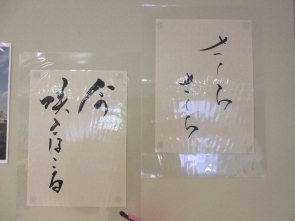 さくら
さくら
今
咲きほこる